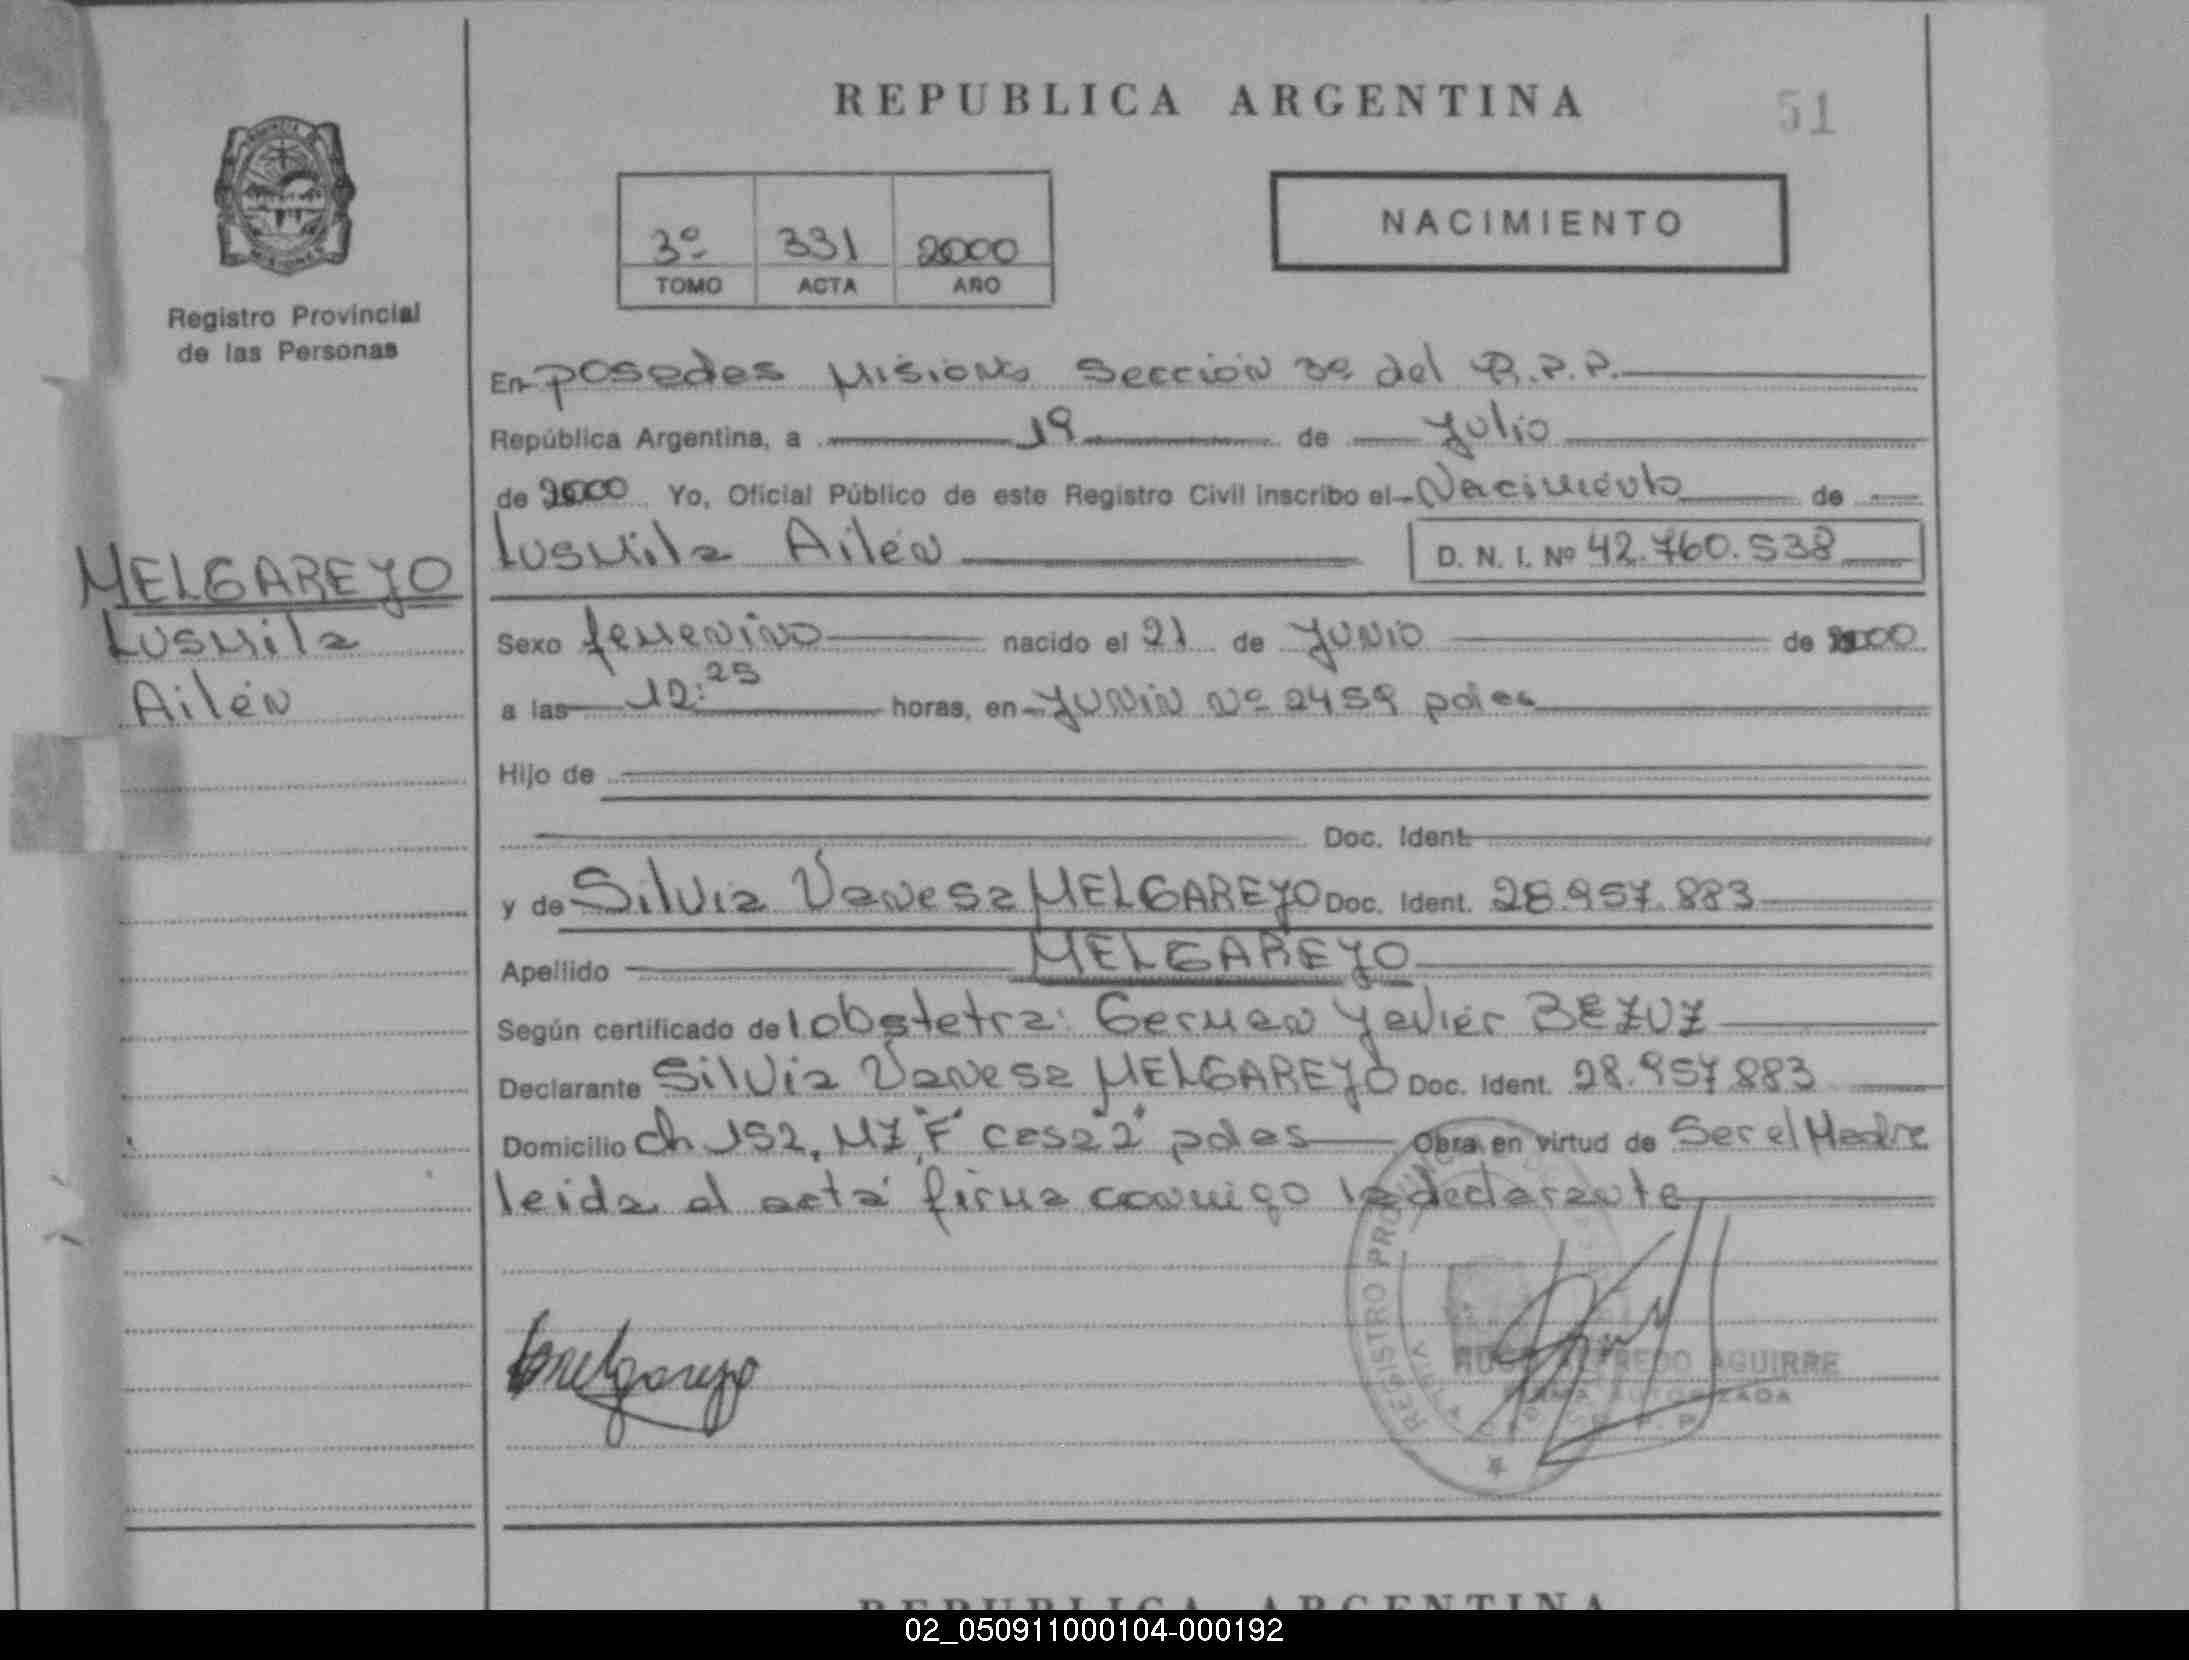 REPUBLICA ARGENTINA
51
3º 331 2000
TOMO ACTA AÑO
NACIMIENTO
Registro Provincial
de las Personas
En Posadas Misiones Sección 3º del R.P.P.
República Argentina, a 19 de Julio
de 2000 Yo, Oficial Público de este Registro Civil inscribo el Nacimiento de
Lusmila Ailén D. N. I. Nº 42.760.538
MELGAREJO
Lusmila
Ailén
Sexo femenino nacido el 21 de Junio de 2000
a las 12:25 horas, en Junin Nº 2459 pdas
Hijo de
Doc. Ident.
y de Silvia Vanesa MELGAREJO Doc. Ident. 28.957.883
Apellido MELGAREJO
Según certificado de l obstetra: German Javier BEZUZ
Declarante Silvia Vanesa MELGAREJO Doc. Ident. 28.957.883
Domicilio ch 152, MZ "F" casa "2" pdas Obra en virtud de Ser el Madre
leida el acta firma conmigo la declarante
Melgarejo
REGISTRO
ALFREDO AGUIRRE
FIRMA AUTORIZADA
REPUBLICA ARGENTINA
02_050911000104-000192